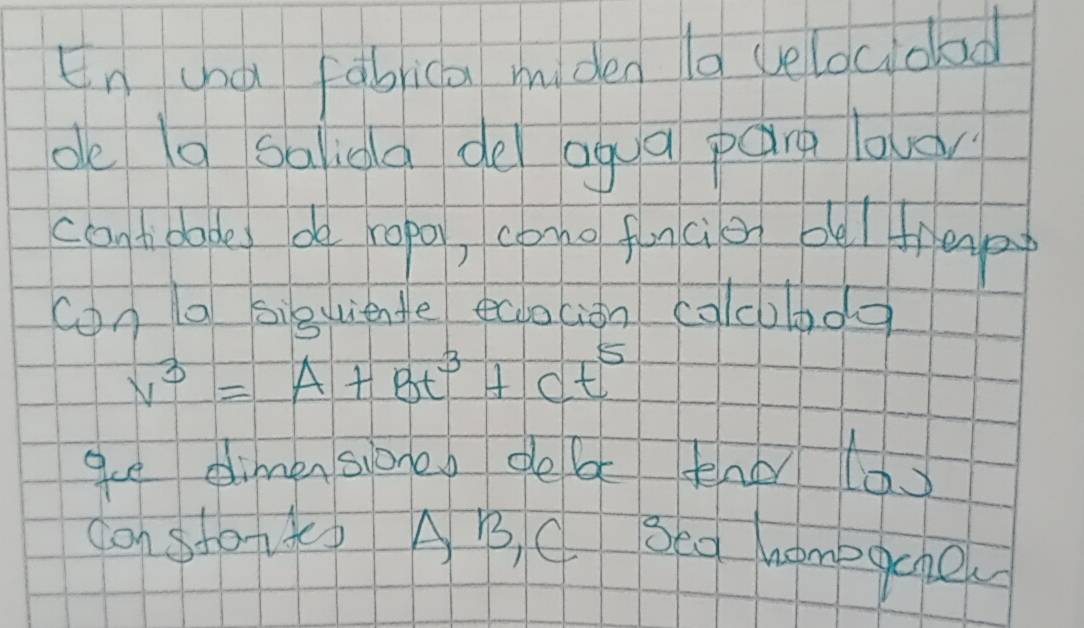 En una fabrica miden la velocidad
de la salida del agua para lavar
cantidades de ropa, como funcion del tiempo
con la siguiente ecuacion calculada
v³ = A + Bt³ + Ct⁵
que dimensiones debe tener las
constantes A, B, C sea homogenea